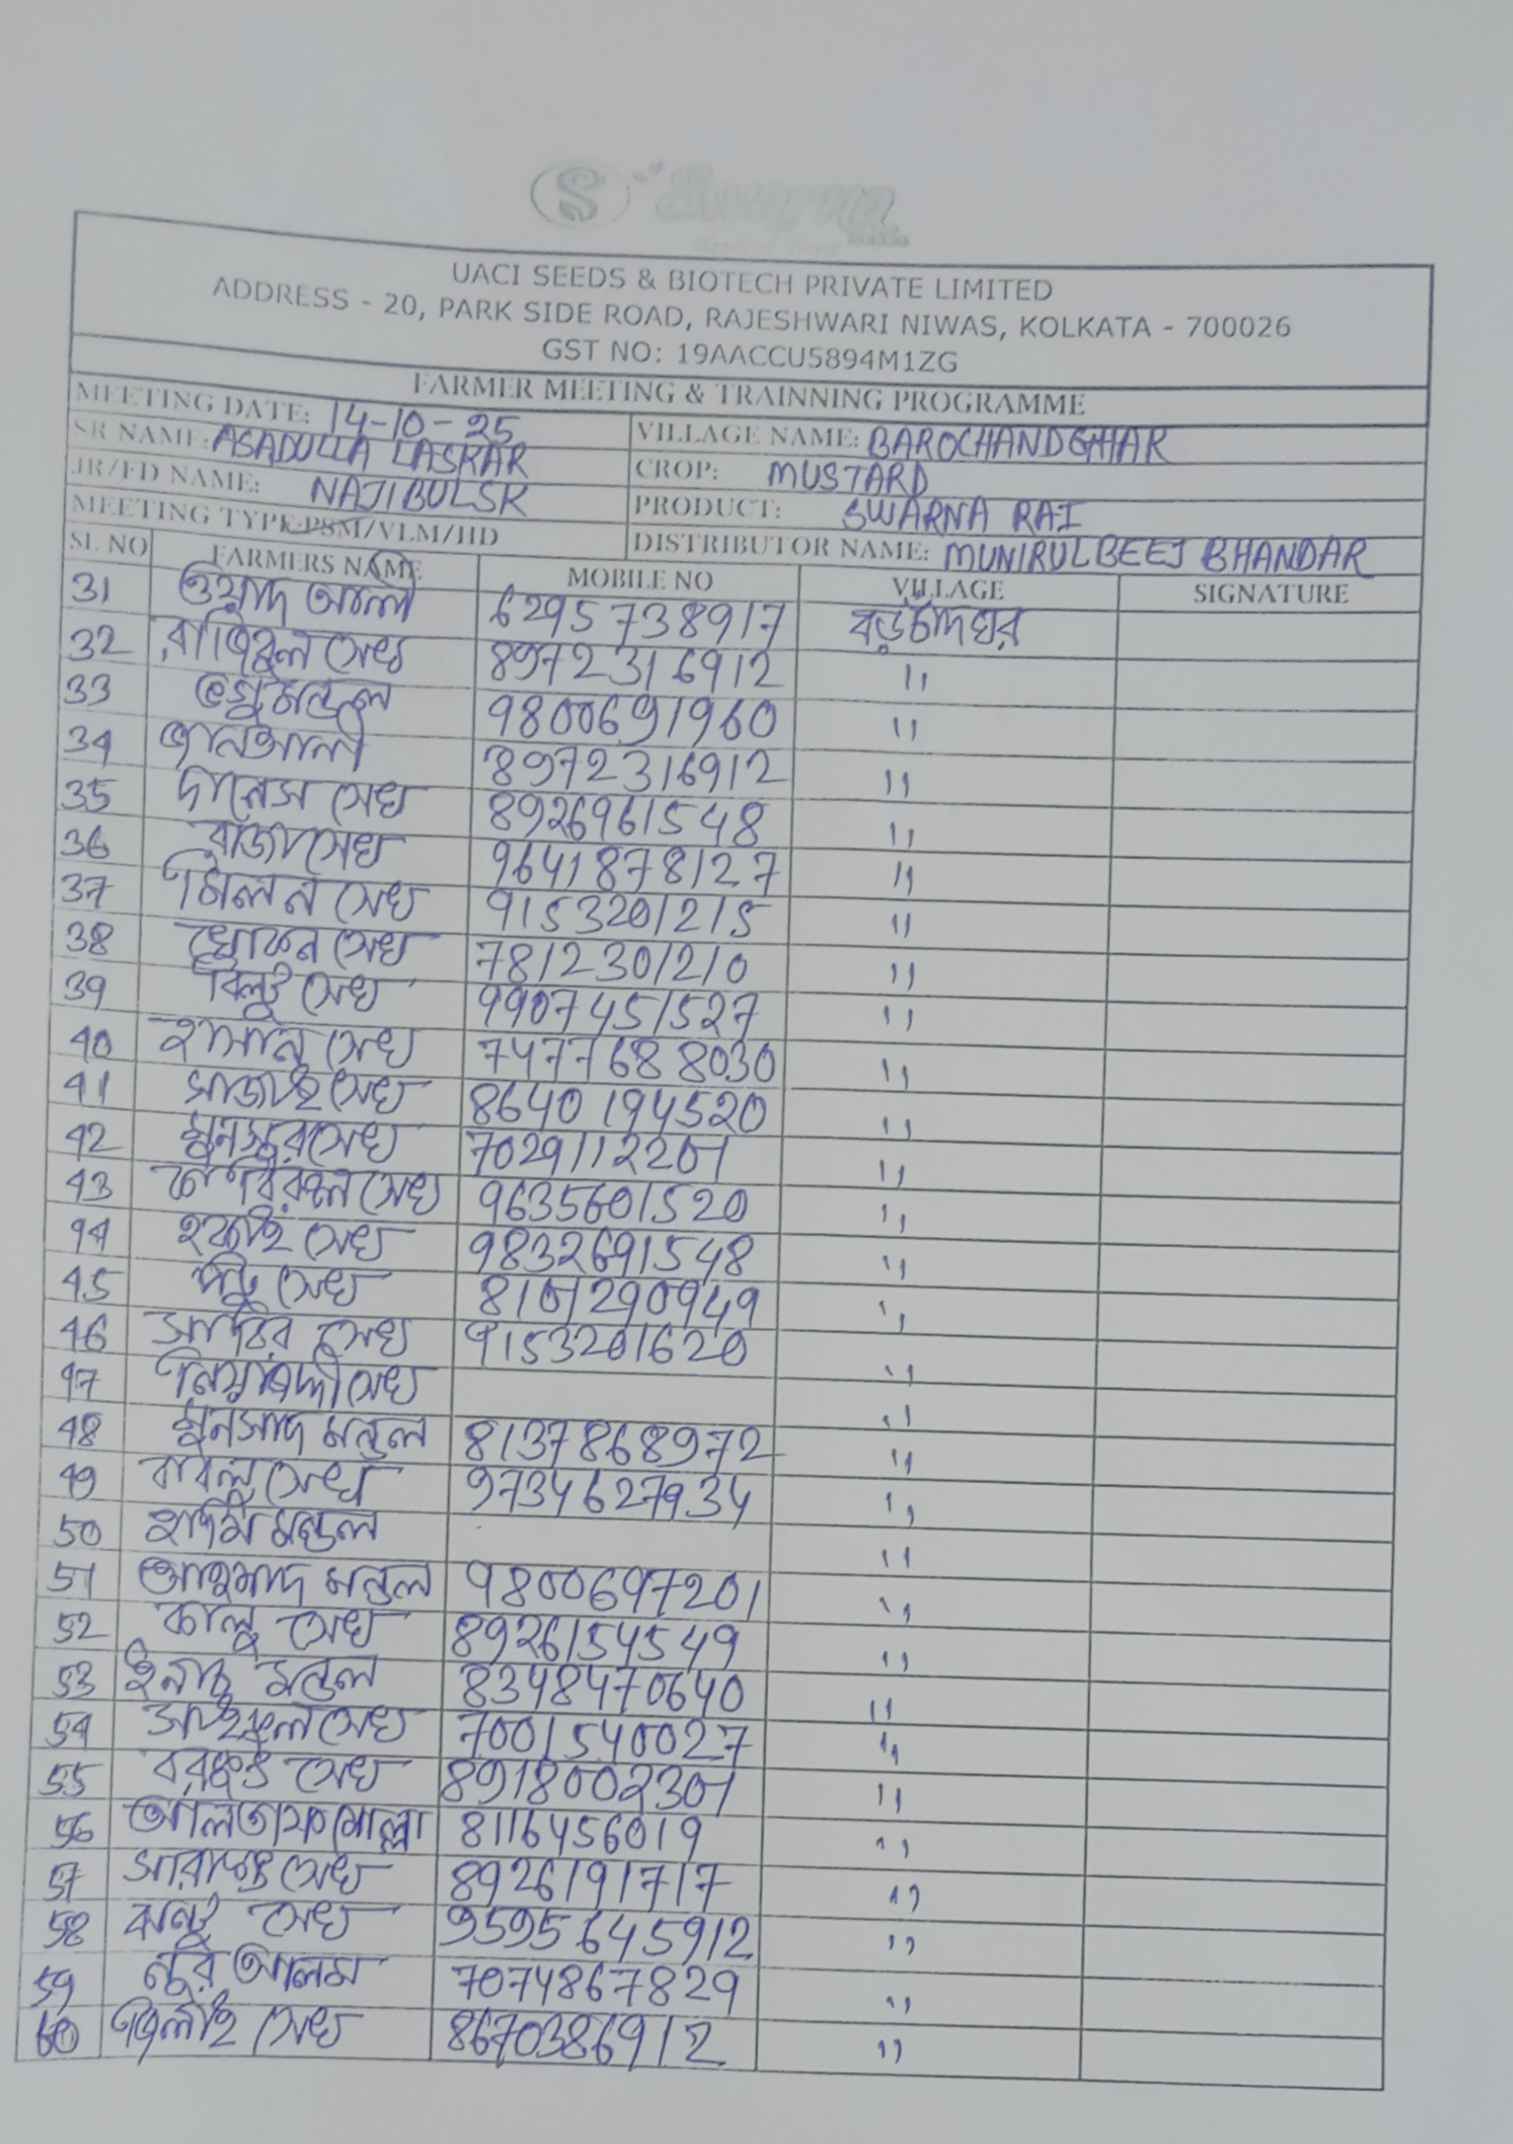 S Swarna
UACI SEEDS & BIOTECH PRIVATE LIMITED
ADDRESS - 20, PARK SIDE ROAD, RAJESHWARI NIWAS, KOLKATA - 700026
GST NO: 19AACCU5894M1ZG
FARMER MEETING & TRAINNING PROGRAMME
MEETING DATE: 14-10-25 VILLAGE NAME: BAROCHANDGHAR
SR NAME: ASADULLA LASKAR CROP: MUSTARD
JR/FD NAME: NAJIBULSK PRODUCT: SWARNA RAI
MEETING TYPE-PSM/VLM/HD DISTRIBUTOR NAME: MUNIRULBEEJ BHANDAR
SL NO FARMERS NAME MOBILE NO VILLAGE SIGNATURE
31 আলী 6295738917 বড়চাঁদঘর
32 সেখ 8972316912 ''
33 মন্ডল 9800691960 ''
34 জানআলী 8972316912 ''
35 দানেস সেখ 8926961548 ''
36 রাজা সেখ 9641878127 ''
37 মিলন সেখ 9153201215 ''
38 খোকন সেখ 7812301210 ''
39 বিল্টু সেখ 9907451527 ''
40 হাসানু সেখ 7477688030 ''
41 সাজাই সেখ 8640194520 ''
42 মুনসুর সেখ 7029112201 ''
43 সেখ 9635601520 ''
44 সেখ 9832691548 ''
45 সেখ 8101290949 ''
46 সেখ 9153201620 ''
47 সেখ ''
48 মুনসাদ মন্ডল 8137868972 ''
49 বাবলু সেখ 9734627934 ''
50 মন্ডল ''
51 মন্ডল 9800697201 ''
52 কালু সেখ 8926154549 ''
53 মন্ডল 8348470640 ''
54 সেখ 7001540027 ''
55 সেখ 8918002301 ''
56 আলতাফ মোল্লা 8116456019 ''
57 সেখ 8926191717 ''
58 ঝন্টু সেখ 9595645912 ''
59 নুর আলম 7074867829 ''
60 সেখ 8670386912 ''